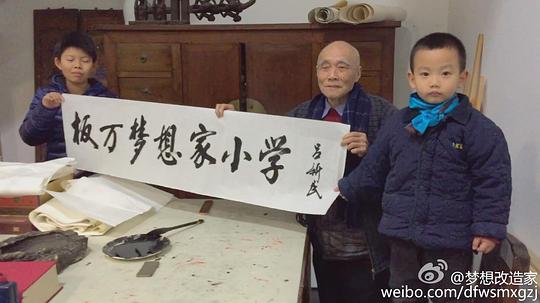 板万梦想家小学
吕新民
@梦想改造家
weibo.com/dfwsmxgzj